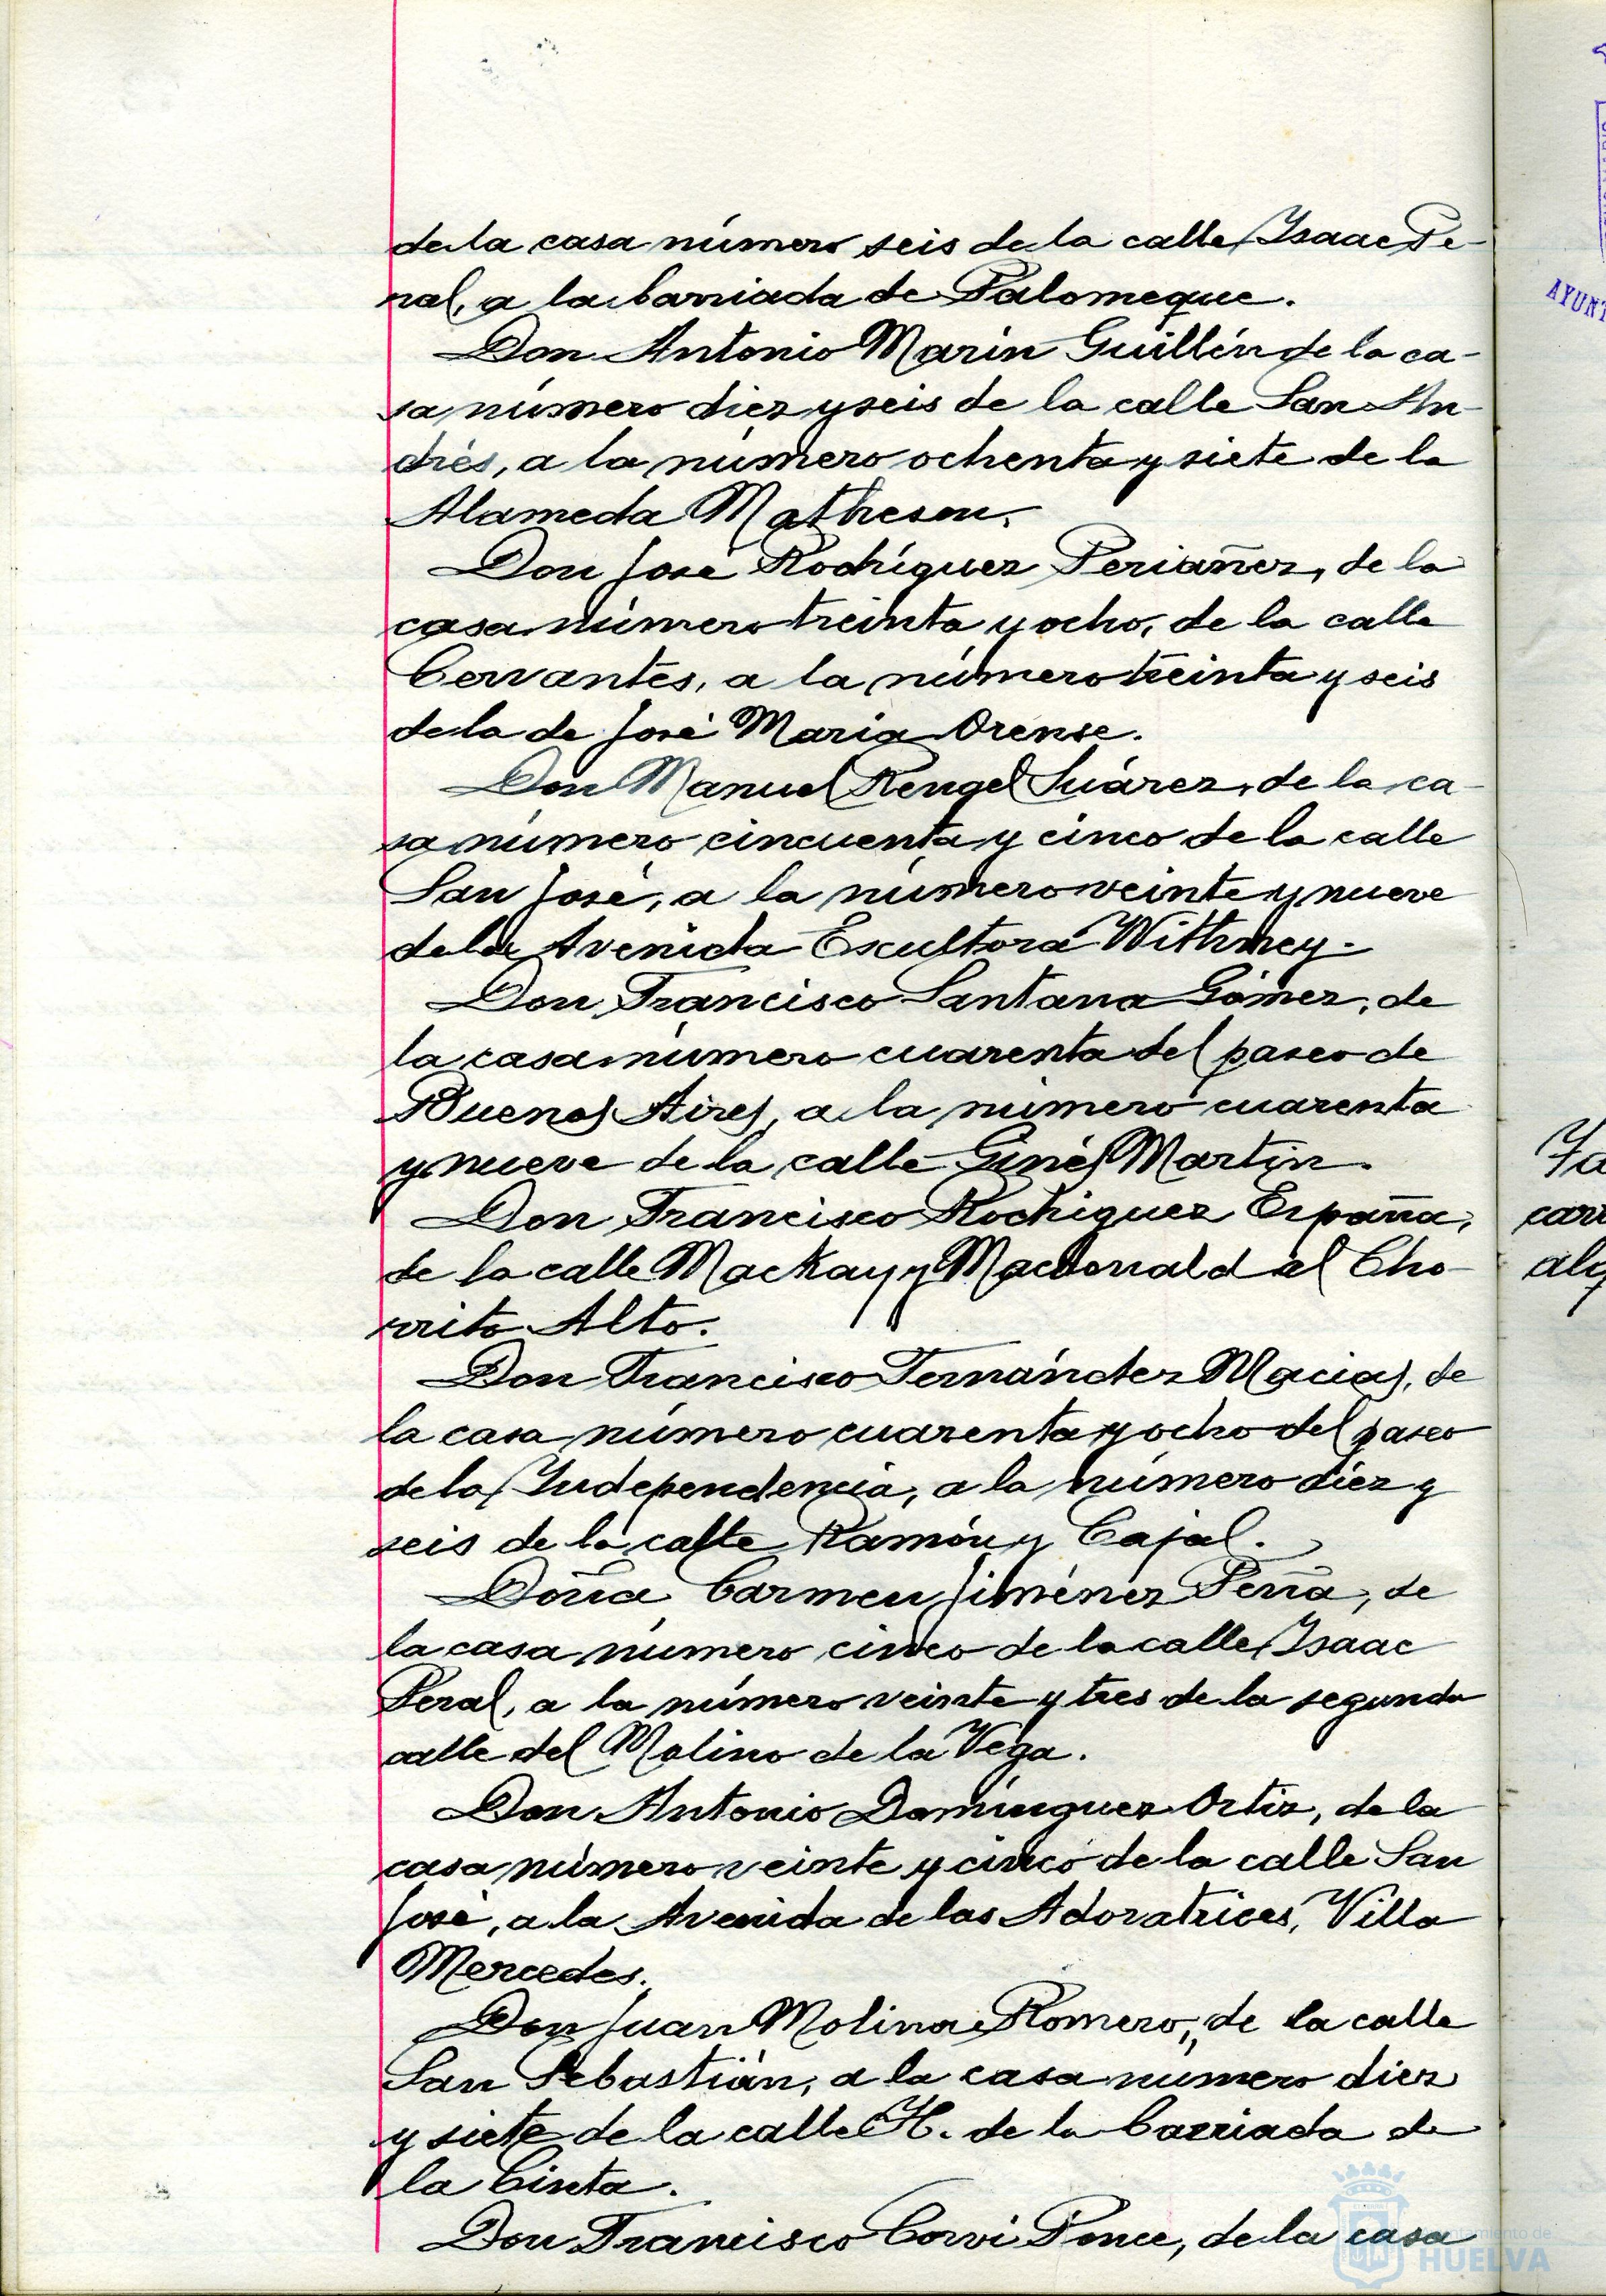 de la casa número seis de la calle Isaac Pe-
ral, a la barriada de Palomeque.
Don Antonio Marín Guillén de la ca-
sa número diez y seis de la calle San An-
drés, a la número ochenta y siete de la
Alameda Matheson.
Don José Rodríguez Periañez, de la
casa número treinta y ocho, de la calle
Cervantes, a la número treinta y seis
de la de José María Orense.
Don Manuel Rengel Suárez, de la ca-
sa número cincuenta y cinco de la calle
San José, a la número veinte y nueve
de la Avenida Escultora Withney.
Don Francisco Santana Gómez, de
la casa número cuarenta del paseo de
Buenos Aires, a la número cuarenta
y nueve de la calle Ginés Martín.
Don Francisco Rodríguez España,
de la calle Mackay y Macdonald al Cho-
rrito Alto.
Don Francisco Fernández Macias, de
la casa número cuarenta y ocho del paseo
de la Independencia, a la número diez y
seis de la calle Ramón y Cajal.
Doña Carmen Jiménez Peña, de
la casa número cinco de la calle Isaac
Peral, a la número veinte y tres de la segunda
calle del Molino de la Vega.
Don Antonio Domínguez Ortiz, de la
casa número veinte y cinco de la calle San
José, a la Avenida de las Adoratrices, Villa
Mercedes.
Don Juan Molina Romero, de la calle
San Sebastián, a la casa número diez
y siete de la calle H. de la barriada de
la Cinta.
Don Francisco Corvi Ponce, de la casa
Ayuntamiento de
HUELVA
AYUNT
Ya
carr
alg